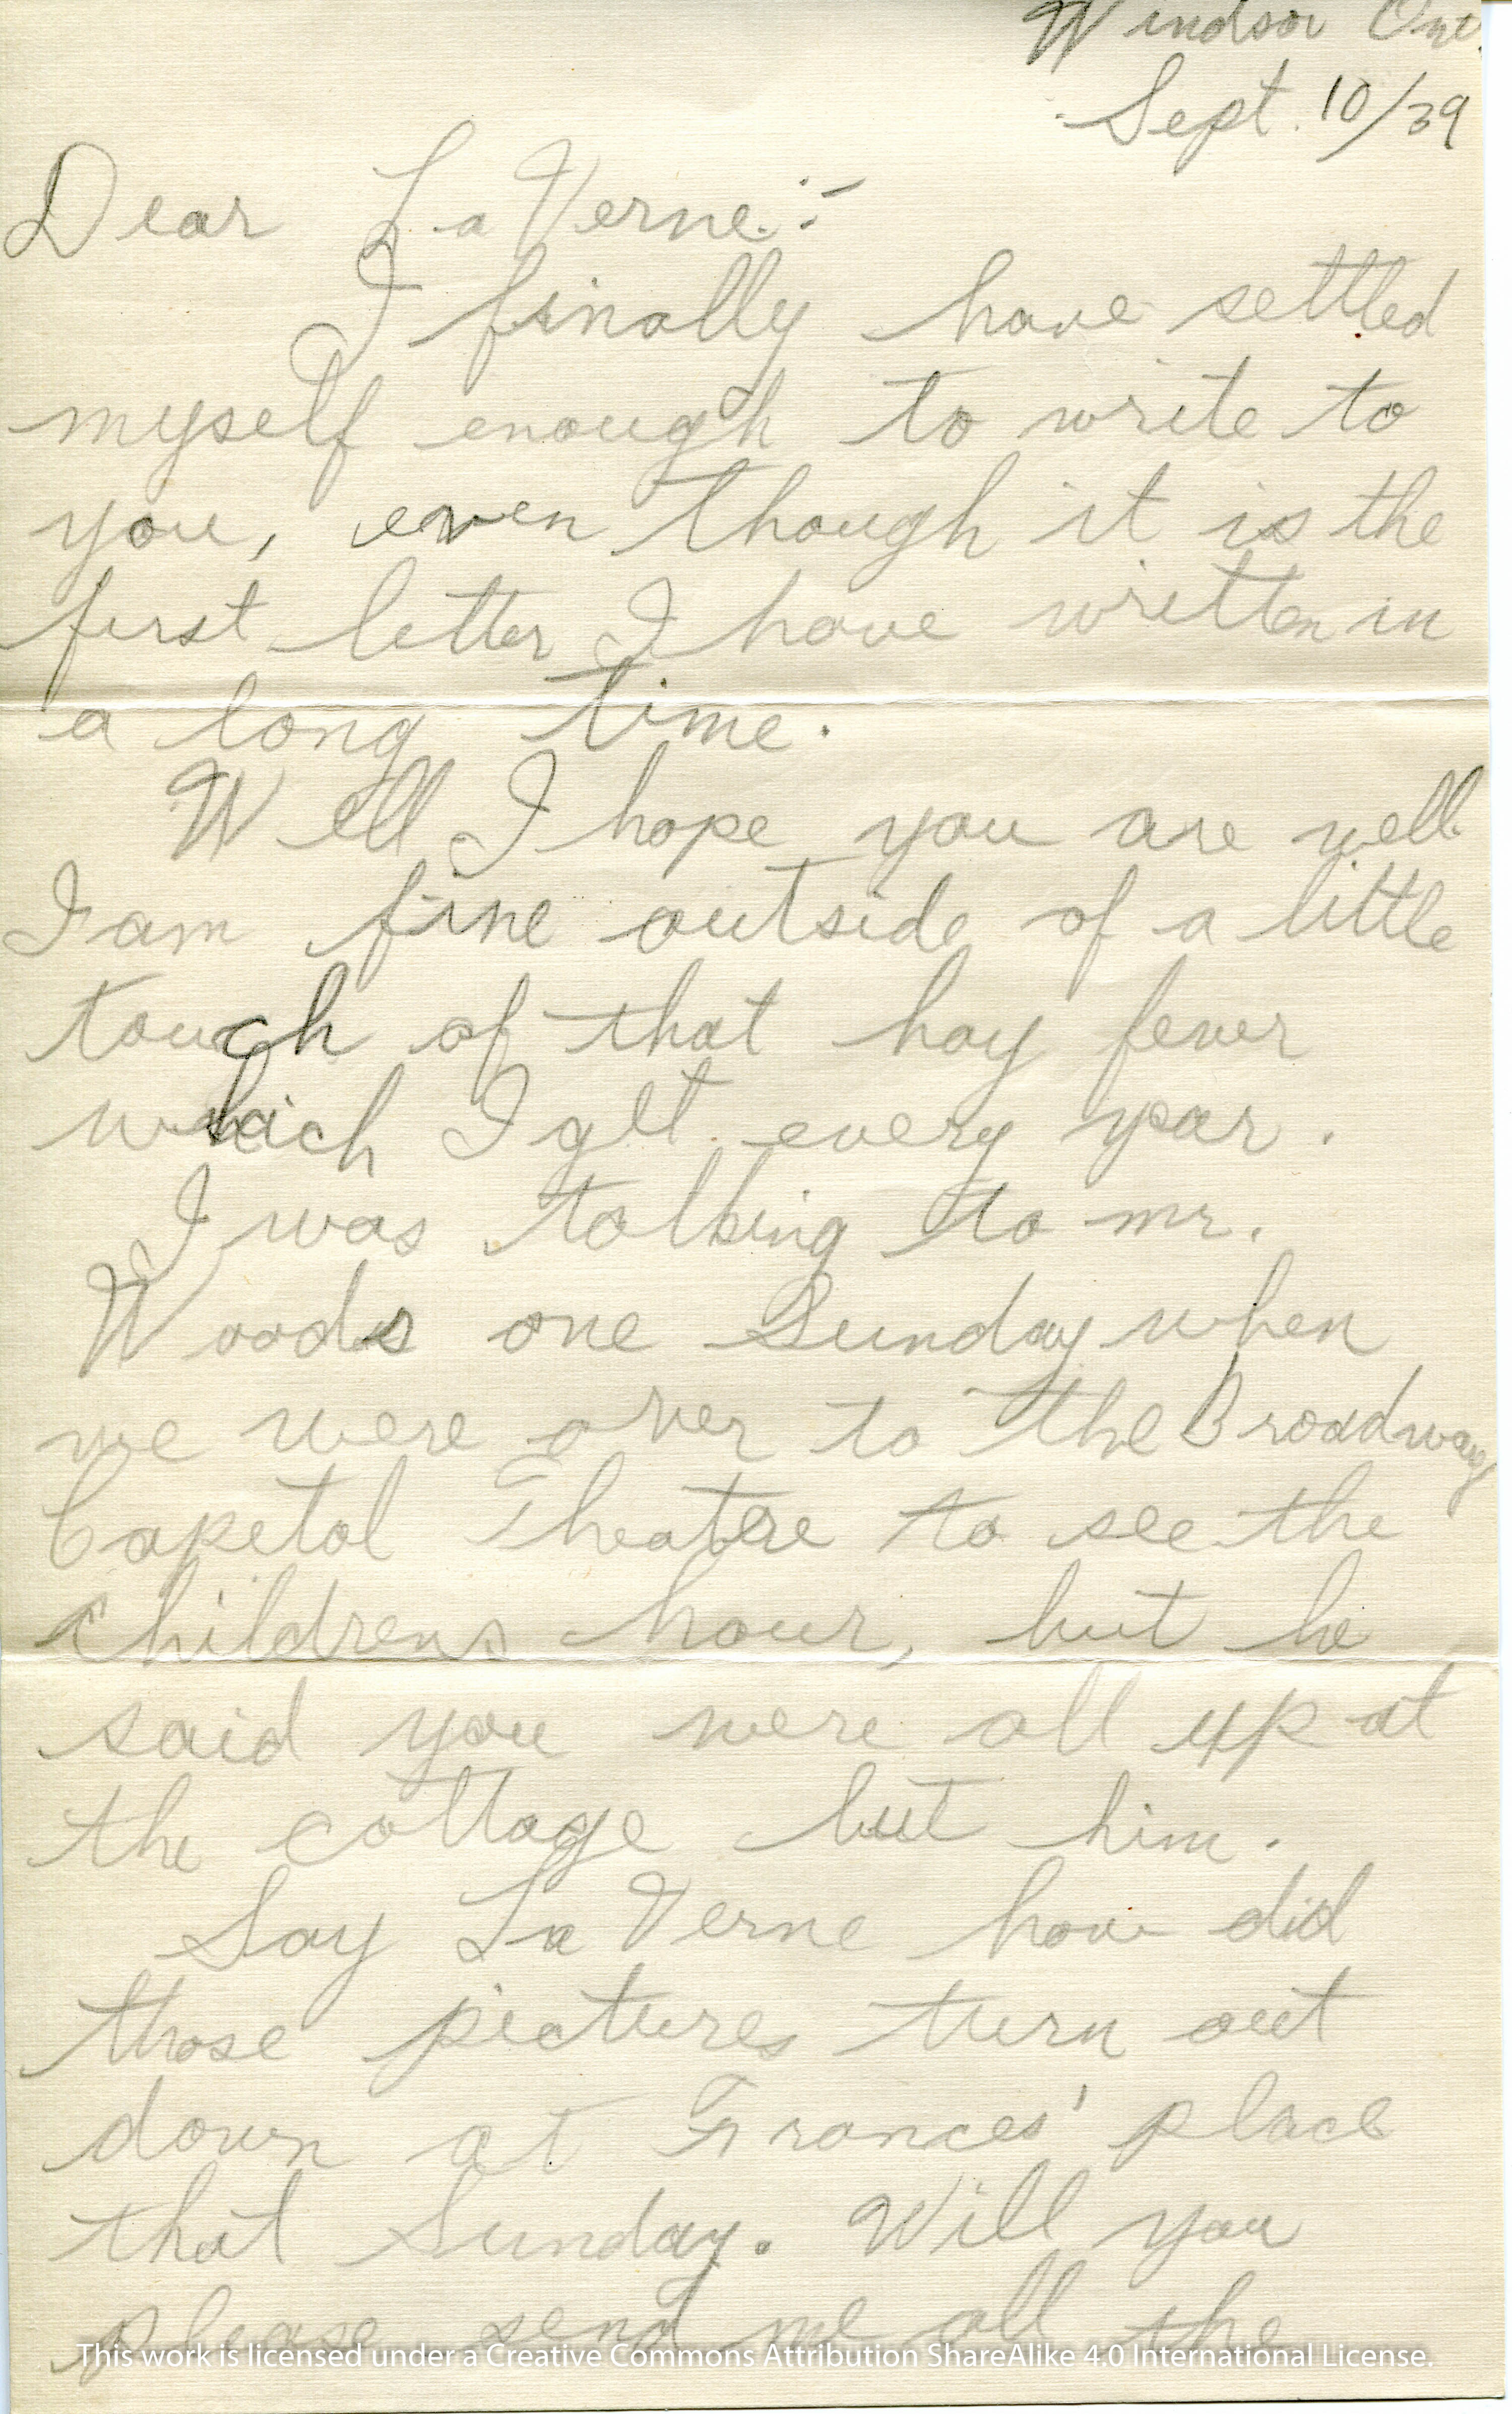 Windsor Ont.
Sept. 10/39
Dear La Verne:-
I finally have settled
myself enough to write to
you, even though it is the
first letter I have written in
a long time.
Well I hope you are well.
I am fine outside of a little
touch of that hay fever
which I get every year.
I was talking to mr.
Woods one Sunday when
we were over to the Broadway
Capetol Theatre to see the
childrens hour, but he
said you were all up at
the cottage but him.
Say La Verne how did
those pictures turn out
down at Frances' place
that Sunday. Will you
please send me all the
This work is licensed under a Creative Commons Attribution ShareAlike 4.0 International License.